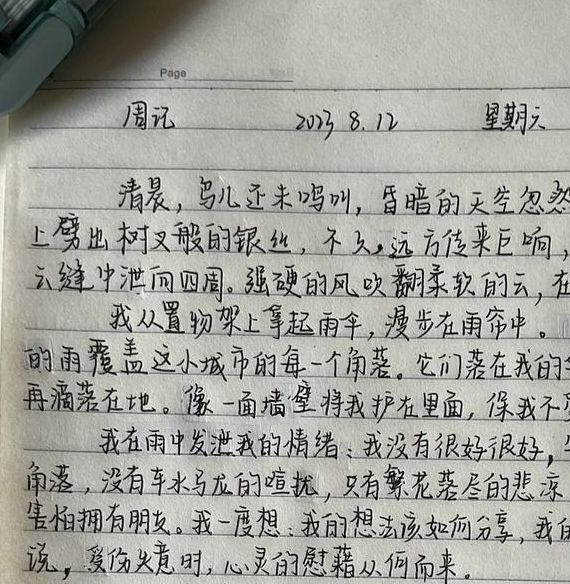 Page
周记 2023 8.12 星期六
清晨，鸟儿还未鸣叫，昏暗的天空忽然
上劈出树叉般的银丝，不久，远方传来巨响，
云缝中泄向四周。强硬的风吹翻柔软的云，在
我从置物架上拿起雨伞，漫步在雨帘中。
的雨覆盖这小城市的每一个角落。它们落在我的
再滴落在地。像一面墙壁将我护在里面，保我不
我在雨中发泄我的情绪：我没有很好很好，
角落，没有车水马龙的喧扰，只有繁花落尽的悲凉
害怕拥有朋友。我一度想：我的想法该如何分享，我的
说，受伤失意时，心灵的慰藉从何而来。